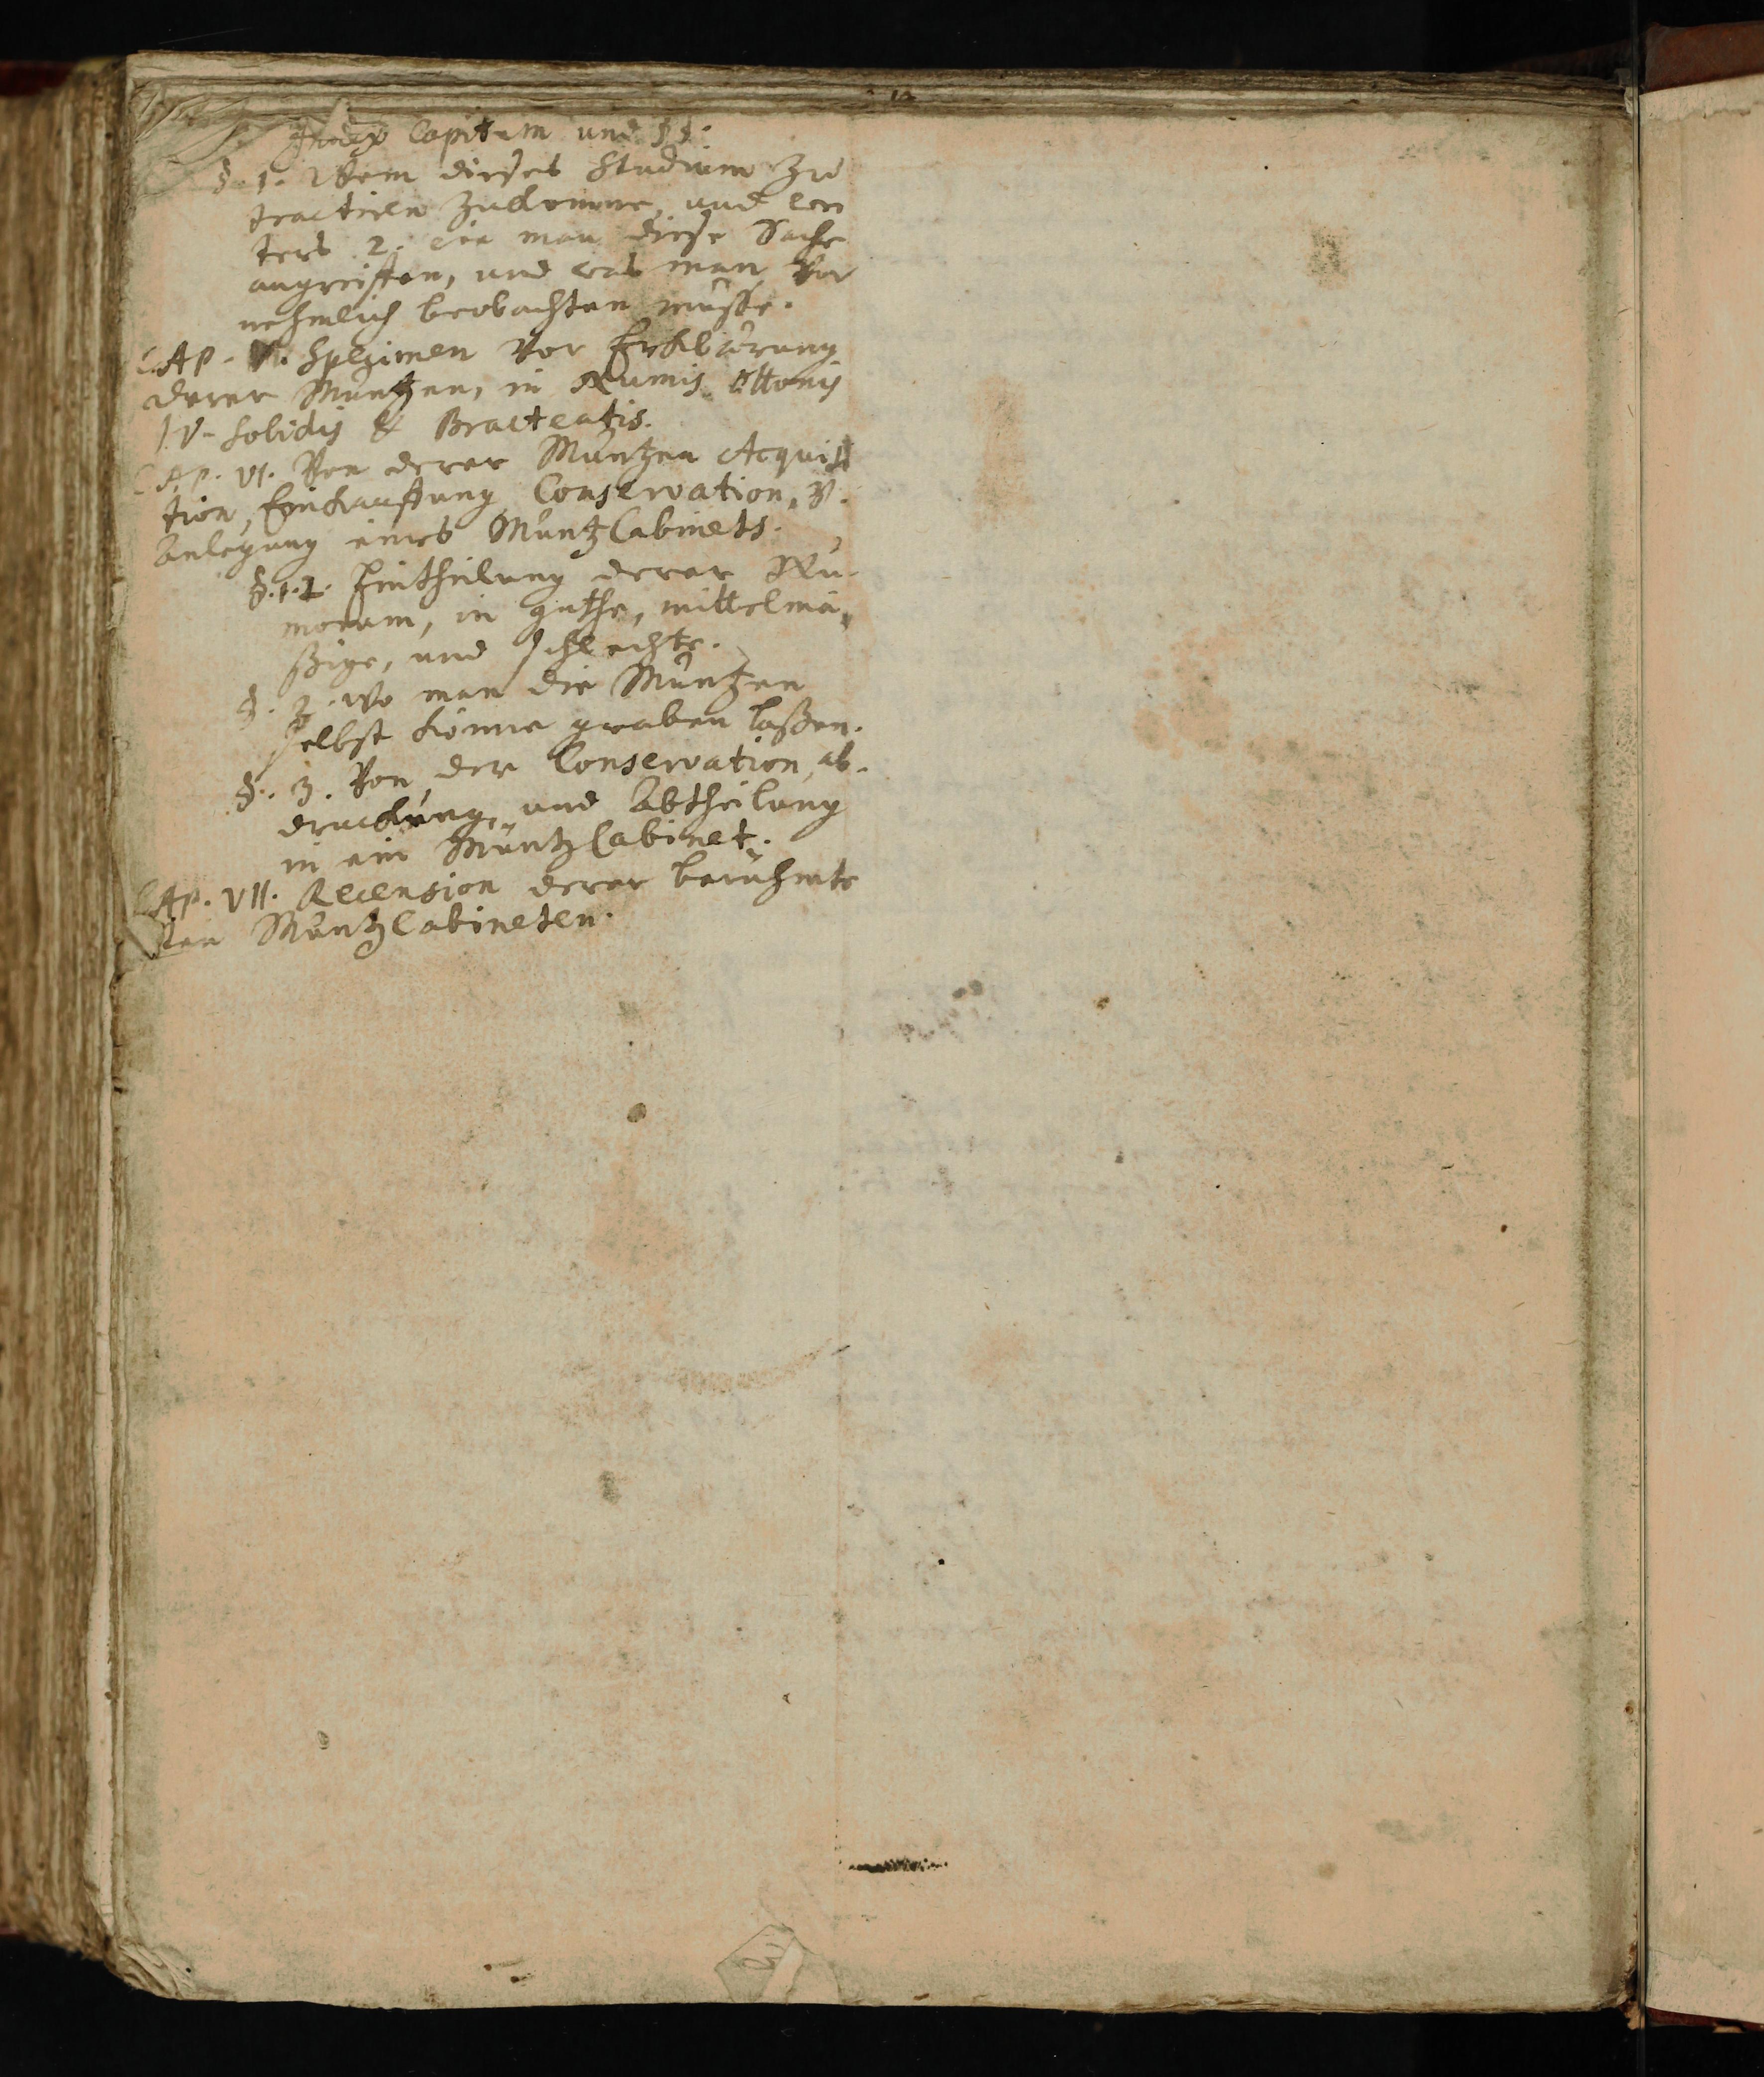 Index Capitum und §§.
§. 1. Wem dieses Studium zu
tractiren zukomme, und
2. wie man diese Sache
angreiffen, und was man vor
nehmlich beobachten müsse.
CAp. V. Specimen vor Erklärung
derer Müntzen, in Numis Ottonis
IV. Solidis & Bracteatis.
CAp. VI. Von derer Müntzen Acquisi
tion, Einkauffung, Conservation, V.
Anlegung eines MüntzCabinets.
§. 1. Eintheilung derer Nu-
morum, in guthe, mittelmä-
ßige, und schlechte.
§. 2. Wo man die Müntzen
selbst könne graben laßen.
§. 3. Von der Conservation, ab-
druckung, und Abtheilung
in ein MüntzCabinet.
CAp. VII. Recension derer berühmte
sten MüntzCabineten.